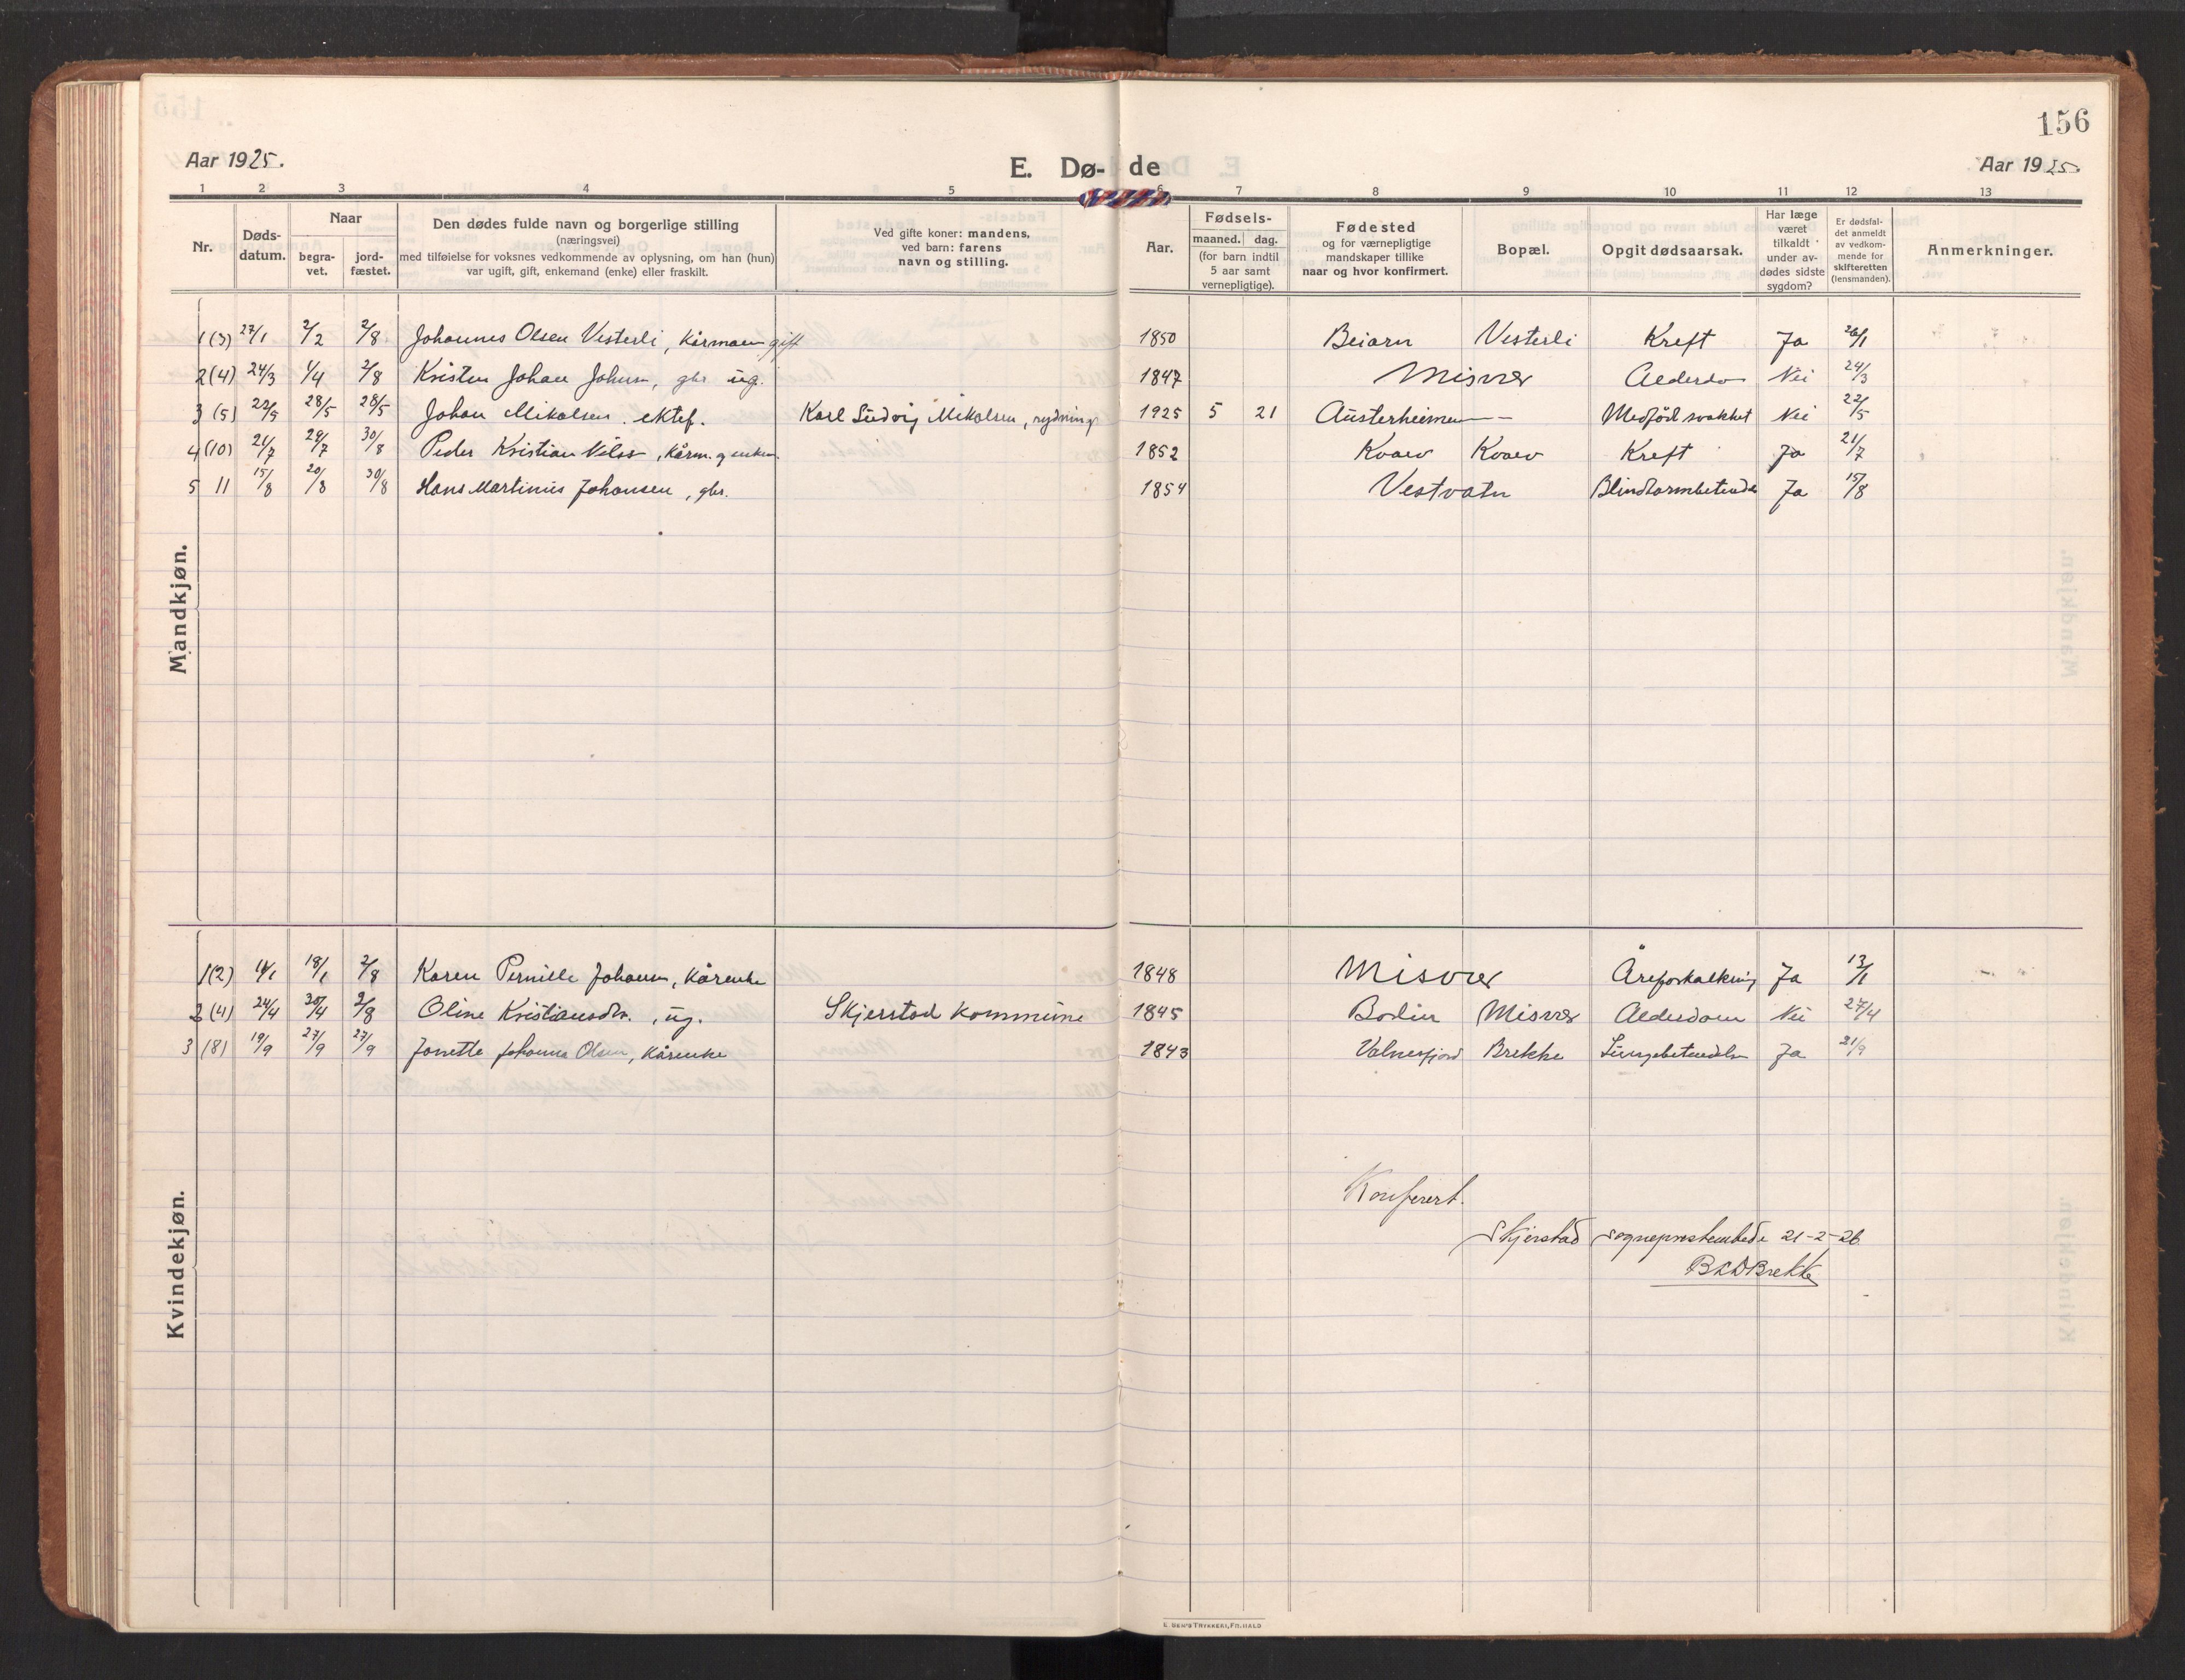 156
Aar 1925.
E. Dø-de
Aar 1925.
1 2 3 4 5 6 7 8 9 10 11 12 13
Nr.
Døds-
datum.
Naar
begra-
vet.
jord-
fæstet.
Den dødes fulde navn og borgerlige stilling
(næringsvei)
med tilføielse for voksnes vedkommende av oplysning, om han (hun)
var ugift, gift, enkemand (enke) eller fraskilt.
Ved gifte koner: mandens,
ved barn: farens
navn og stilling.
Aar.
Fødsels-
maaned. dag.
(for barn indtil
5 aar samt
vernepligtige).
Fødested
og for værnepligtige
mandskaper tillike
naar og hvor konfirmert.
Bopæl.
Opgit dødsaarsak.
Har læge
været
tilkaldt
under av-
dødes sidste
sygdom?
Er dødsfal-
det anmeldt
av vedkom-
mende for
skifteretten
(lensmanden).
Anmerkninger.
Mandkjøn.
1 (3) 27/1 2/2 2/8 Johannes Olsen Vesterli, Kårmann gift 1850 Beiarn Vesterli Kreft Ja 26/1
2 (4) 24/3 1/4 2/8 Kristen Johan Johnsn, gbr. ug. 1847 Misvær Alderdo Nei 24/3
3 (5) 22/5 28/5 28/5 Johan Mikalsen. ektef. Karl Ludvig Mikalsen, rydning 1925 5 21 Austerheimen — Medfød svakhet Nei 22/5
4 (10) 21/7 29/7 30/8 Peder Kristian Nilss, Kårm. g enkem. 1852 Kvaev Kvaev Kreft Ja 21/7
5 11 15/8 20/8 30/8 Hans Martinus Johansen, gbr. 1854 Vestvatn Blindtarmbetende Ja 15/8
Kvindekjøn.
1 (2) 11/1 18/1 2/8 Karen Pernille Johansn, Kårenke 1848 Misvær Åreforkalkning Ja 13/1
2 (4) 24/4 30/4 2/8 Oline Kristiansdtr., ug. Skjerstad kommune 1845 Bodin Misvær Alderdom Nei 27/4
3 (8) 19/9 27/9 27/9 Jonette Johanna Olsen, Kårenke 1843 Valnesfjord Brekke Lungebetendelse Ja 21/9
Konferert.
Skjerstad sogneprestembede 21-2-26
BKDBrekke